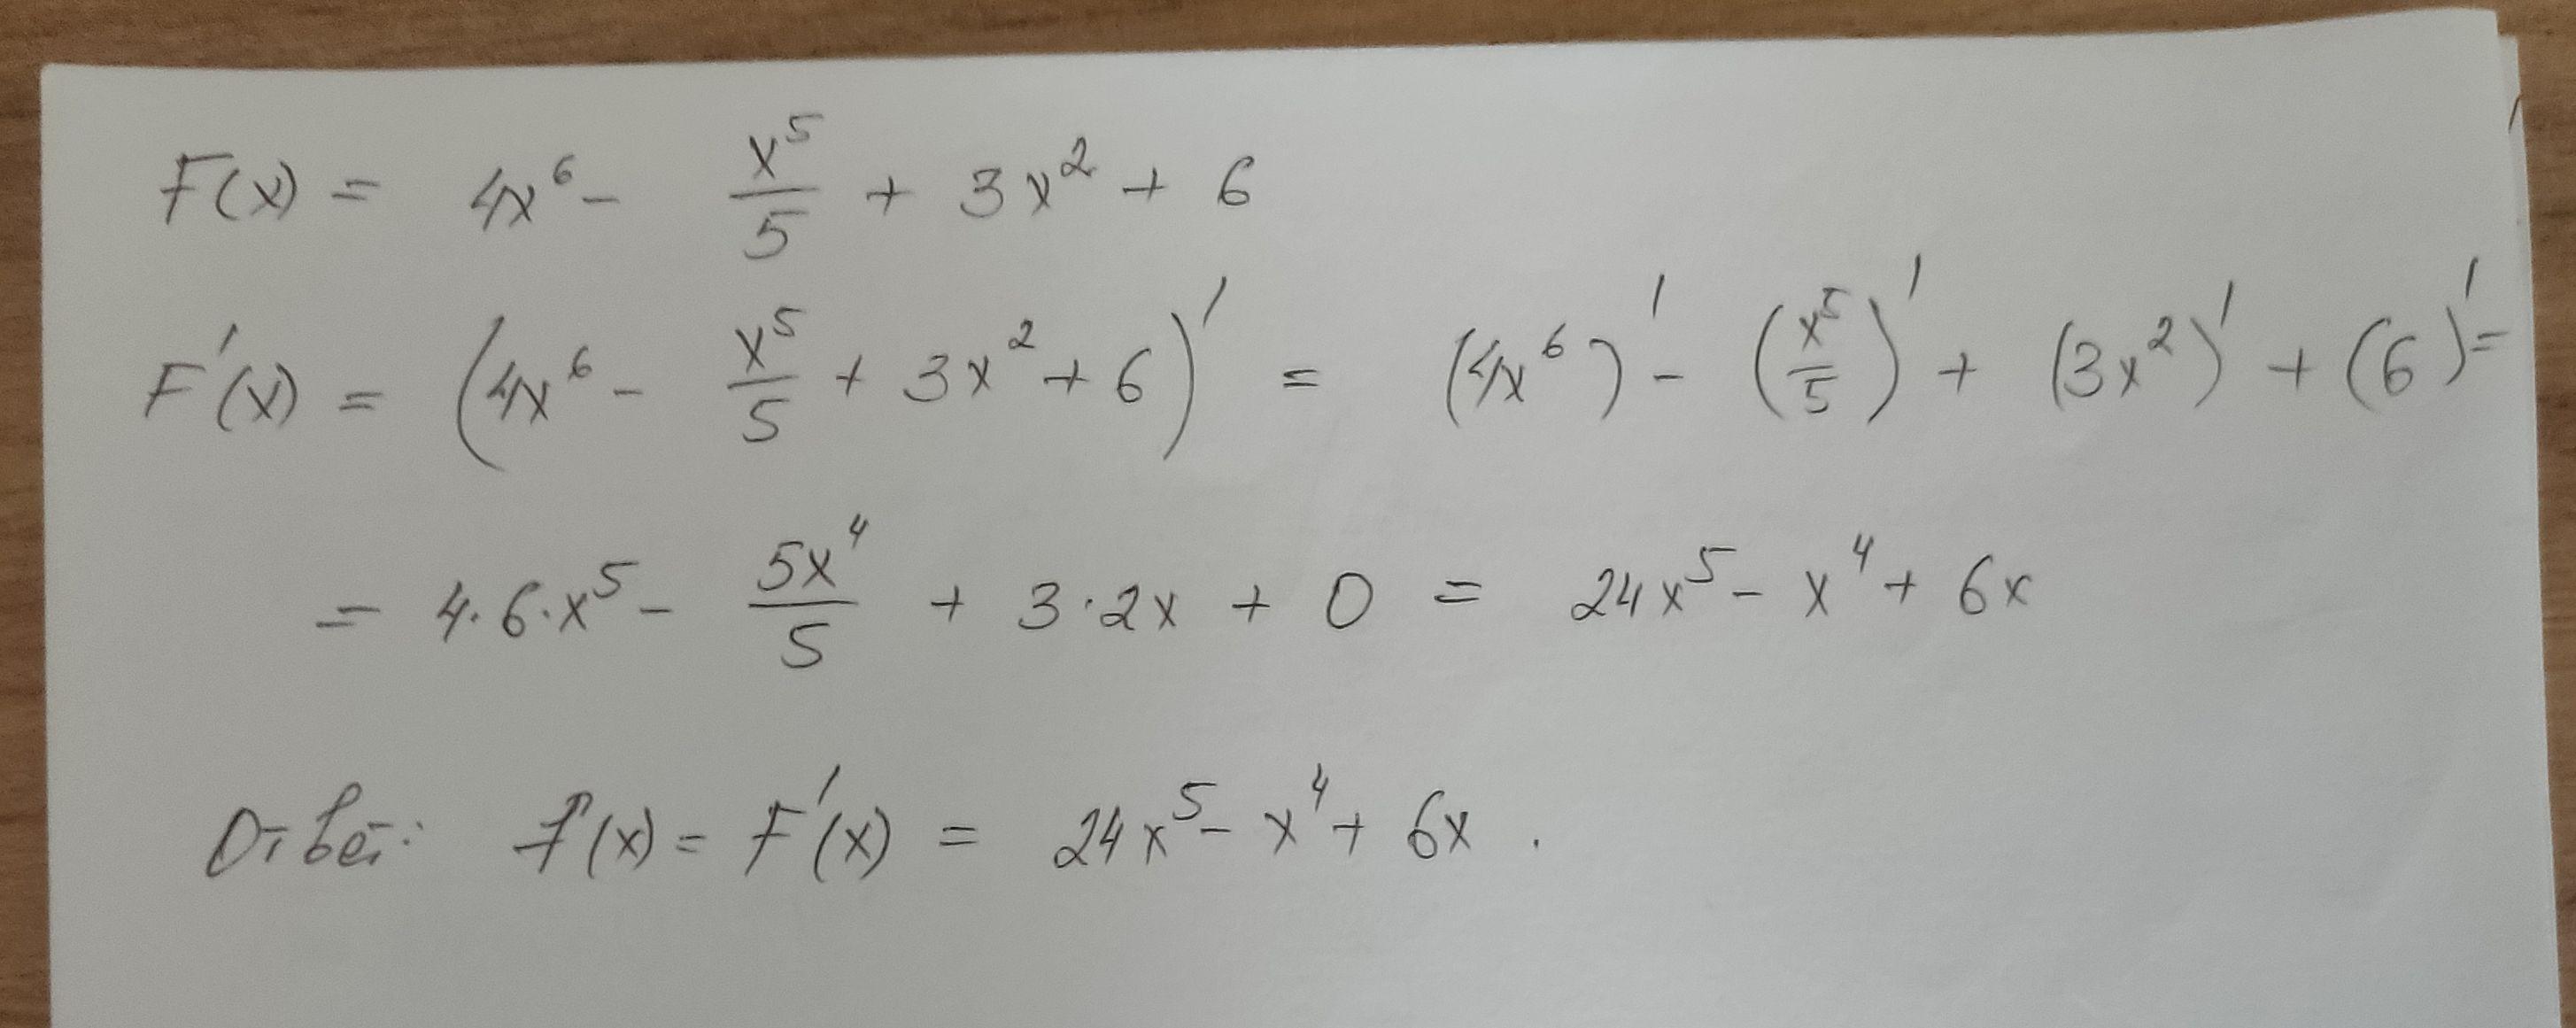 F(x) = 4x⁶ - x⁵/5 + 3x² + 6
F'(x) = (4x⁶ - x⁵/5 + 3x² + 6)' = (4x⁶)' - (x⁵/5)' + (3x²)' + (6)' =
= 4·6·x⁵ - 5x⁴/5 + 3·2x + 0 = 24x⁵ - x⁴ + 6x
Ответ: f(x) = F'(x) = 24x⁵ - x⁴ + 6x.